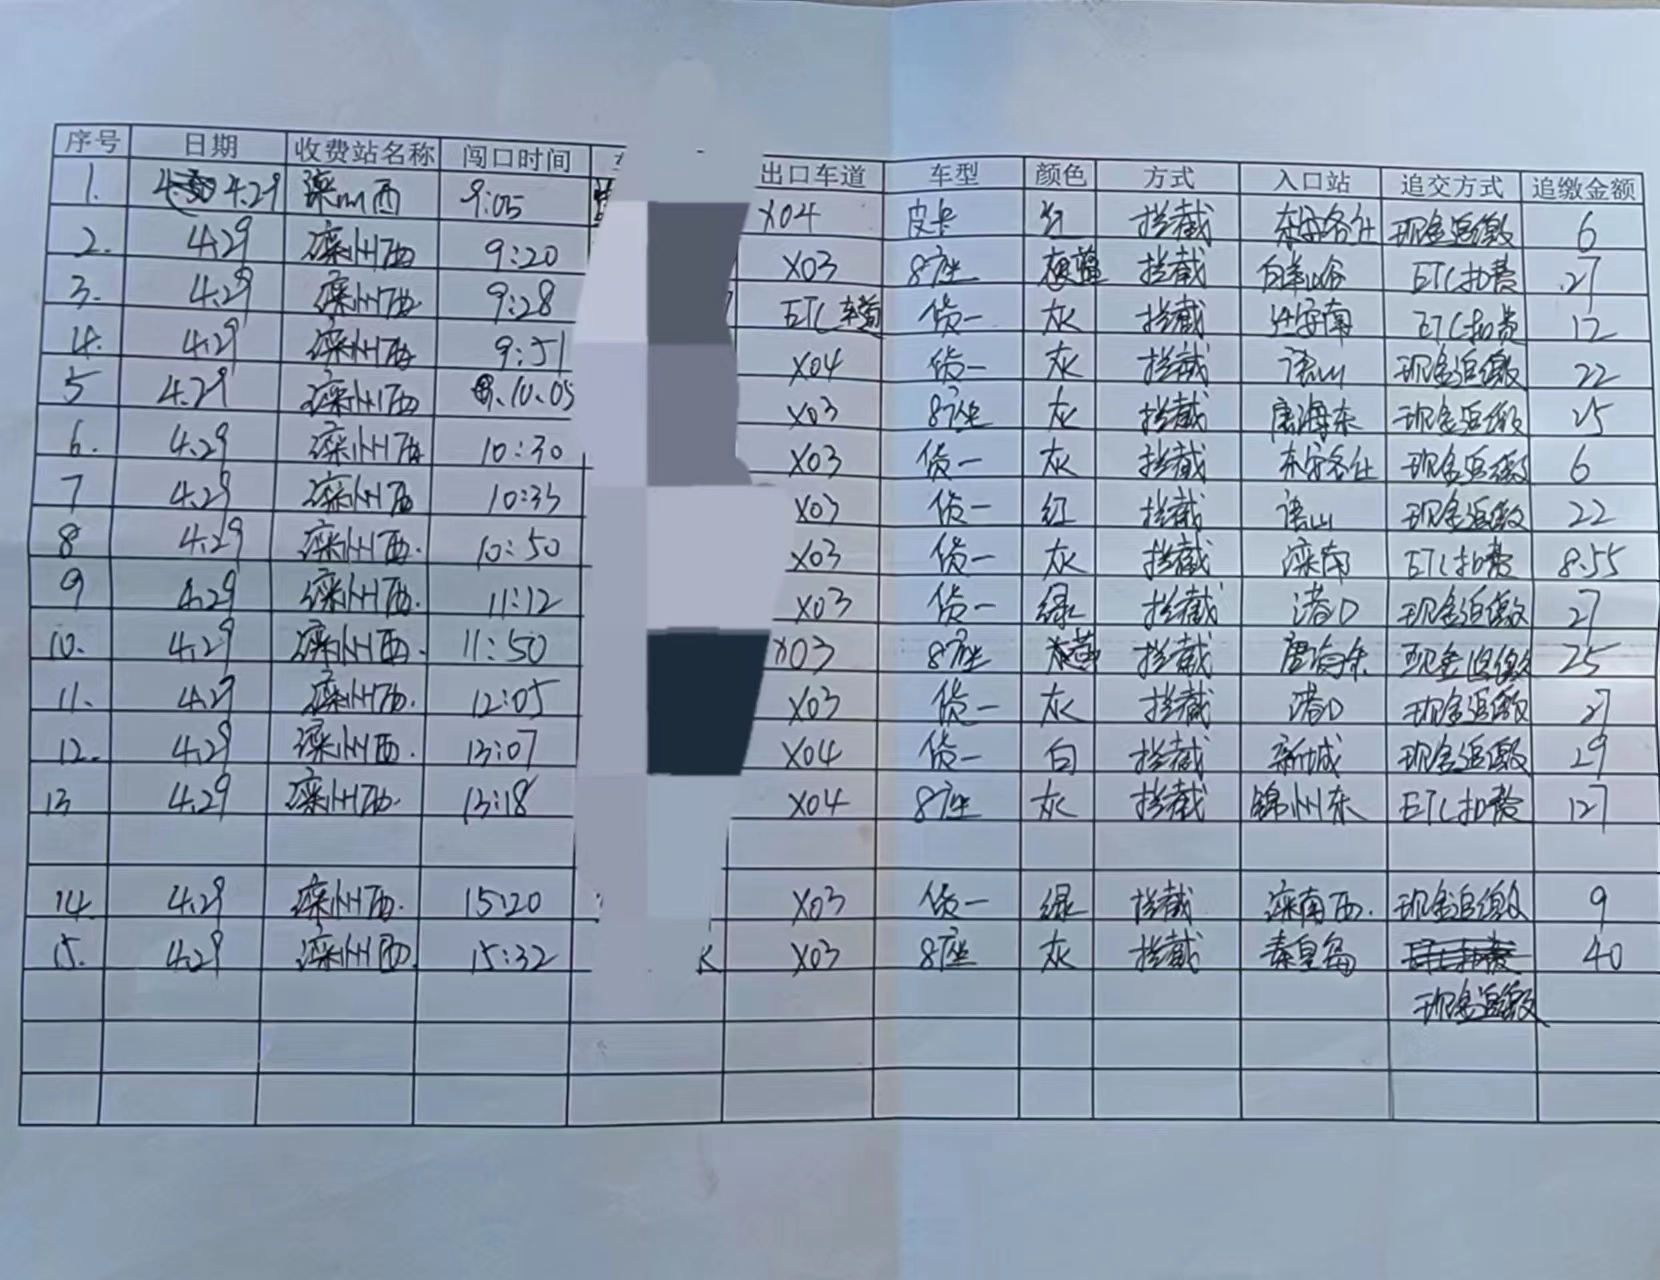 序号 日期 收费站名称 闯口时间 出口车道 车型 颜色 方式 入口站 追交方式 追缴金额
1. 4.29 滦州西 9:05 X04 皮卡 拦截 东安各庄 现金追缴 6
2. 4.29 滦州西 9:20 X03 8座 拦截 白羊峪 ETC扣费 27
3. 4.29 滦州西. 9:28 ETC车道 货一 灰 拦截 迁安南 ETC扣费 12
4. 4.29 滦州西 9:51 X04 货一 灰 拦截 现金追缴 22
5 4.29 滦州西 10.05 X03 8座 灰 拦截 唐海东 现金追缴 25
6. 4.29 滦州西 10:30 X03 货一 灰 拦截 东安各庄 现金追缴 6
7 4.29 滦州西 10:35 X03 货一 红 拦截 现金追缴 22
8 4.29 滦州西. 10:50 X03 货一 灰 拦截 滦南 ETC扣费 8.55
9 4.29 滦州西. 11:12 X03 货一 绿 拦截 现金追缴 27
10. 4.29 滦州西. 11:50 X03 8座 拦截 唐海东 现金追缴 25
11. 4.29 滦州西. 12:05 X03 货一 灰 拦截 现金追缴 27
12. 4.29 滦州西. 13:07 X04 货一 白 拦截 新城 现金追缴 29
13 4.29 滦州西. 13:18 X04 8座 灰 拦截 锦州东 ETC扣费 127
14. 4.29 滦州西. 15:20 X03 货一 绿 拦截 滦南西. 现金追缴 9
15. 4.29 滦州西. 15:32 K X03 8座 灰 拦截 秦皇岛 40
现金追缴